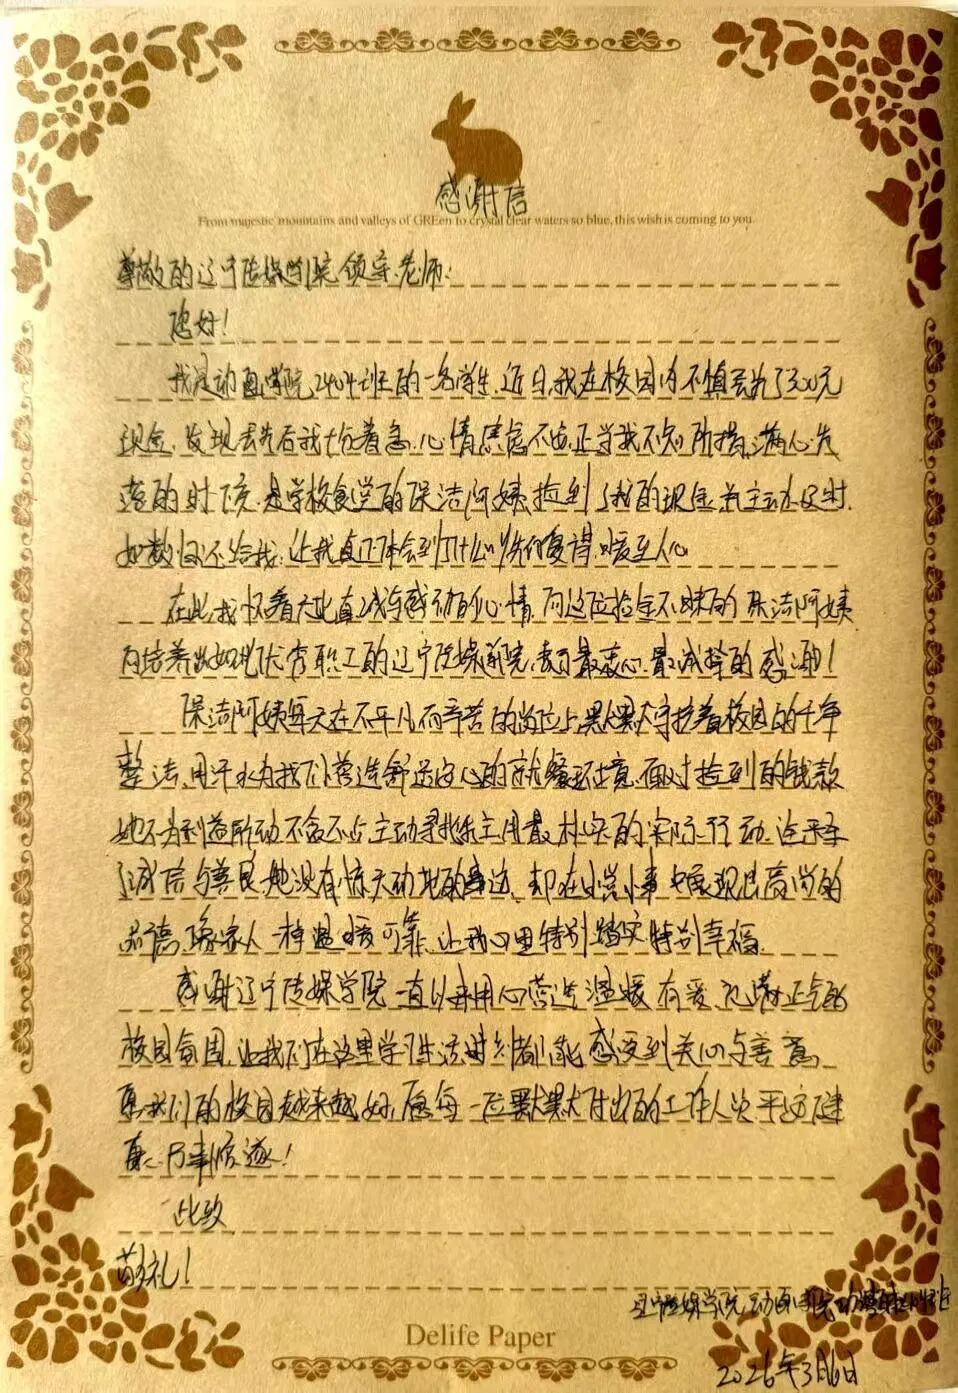 感谢信
From majestic mountains and valleys of GREen to crystal clear waters so blue, this wish is coming to you.
尊敬的辽宁传媒学院领导、老师:
您好!
我是动画学院2404班的一名学生,近日,我在校园内不慎丢失了300元
现金,发现丢失后我十分着急,心情焦急不安,正当我不知所措,满心失
落的时候,是学校食堂的保洁阿姨捡到了我的现金,并主动及时,
如数归还给我,让我真正体会到了什么叫失而复得,暖至人心
在此我怀着无比真诚与感动的心情,向这位拾金不昧的保洁阿姨
向培养出如此优秀职工的辽宁传媒学院,表示最衷心,最诚挚的感谢!
保洁阿姨每天在不平凡而辛苦的岗位上默默守护着校园的干净
整洁,用汗水为我们营造舒适安心的就餐环境,面对捡到的钱款
她不为利益所动,不贪不占,主动寻找失主,用最朴实的实际行动,诠释
了诚信与善良,她没有惊天动地的事迹,却在日常小事中展现出高尚的
品德,像家人一样温暖可靠,让我心里特别踏实,特别幸福.
感谢辽宁传媒学院一直以来用心营造温暖,有爱,充满正气的
校园氛围,让我们在这里学习生活时刻都能感受到关心与善意,
愿我们的校园越来越好,愿每一位默默付出的工作人员平安健
康,万事顺遂!
此致
敬礼!
辽宁传媒学院动画学院
Delife Paper
2026年3月6日